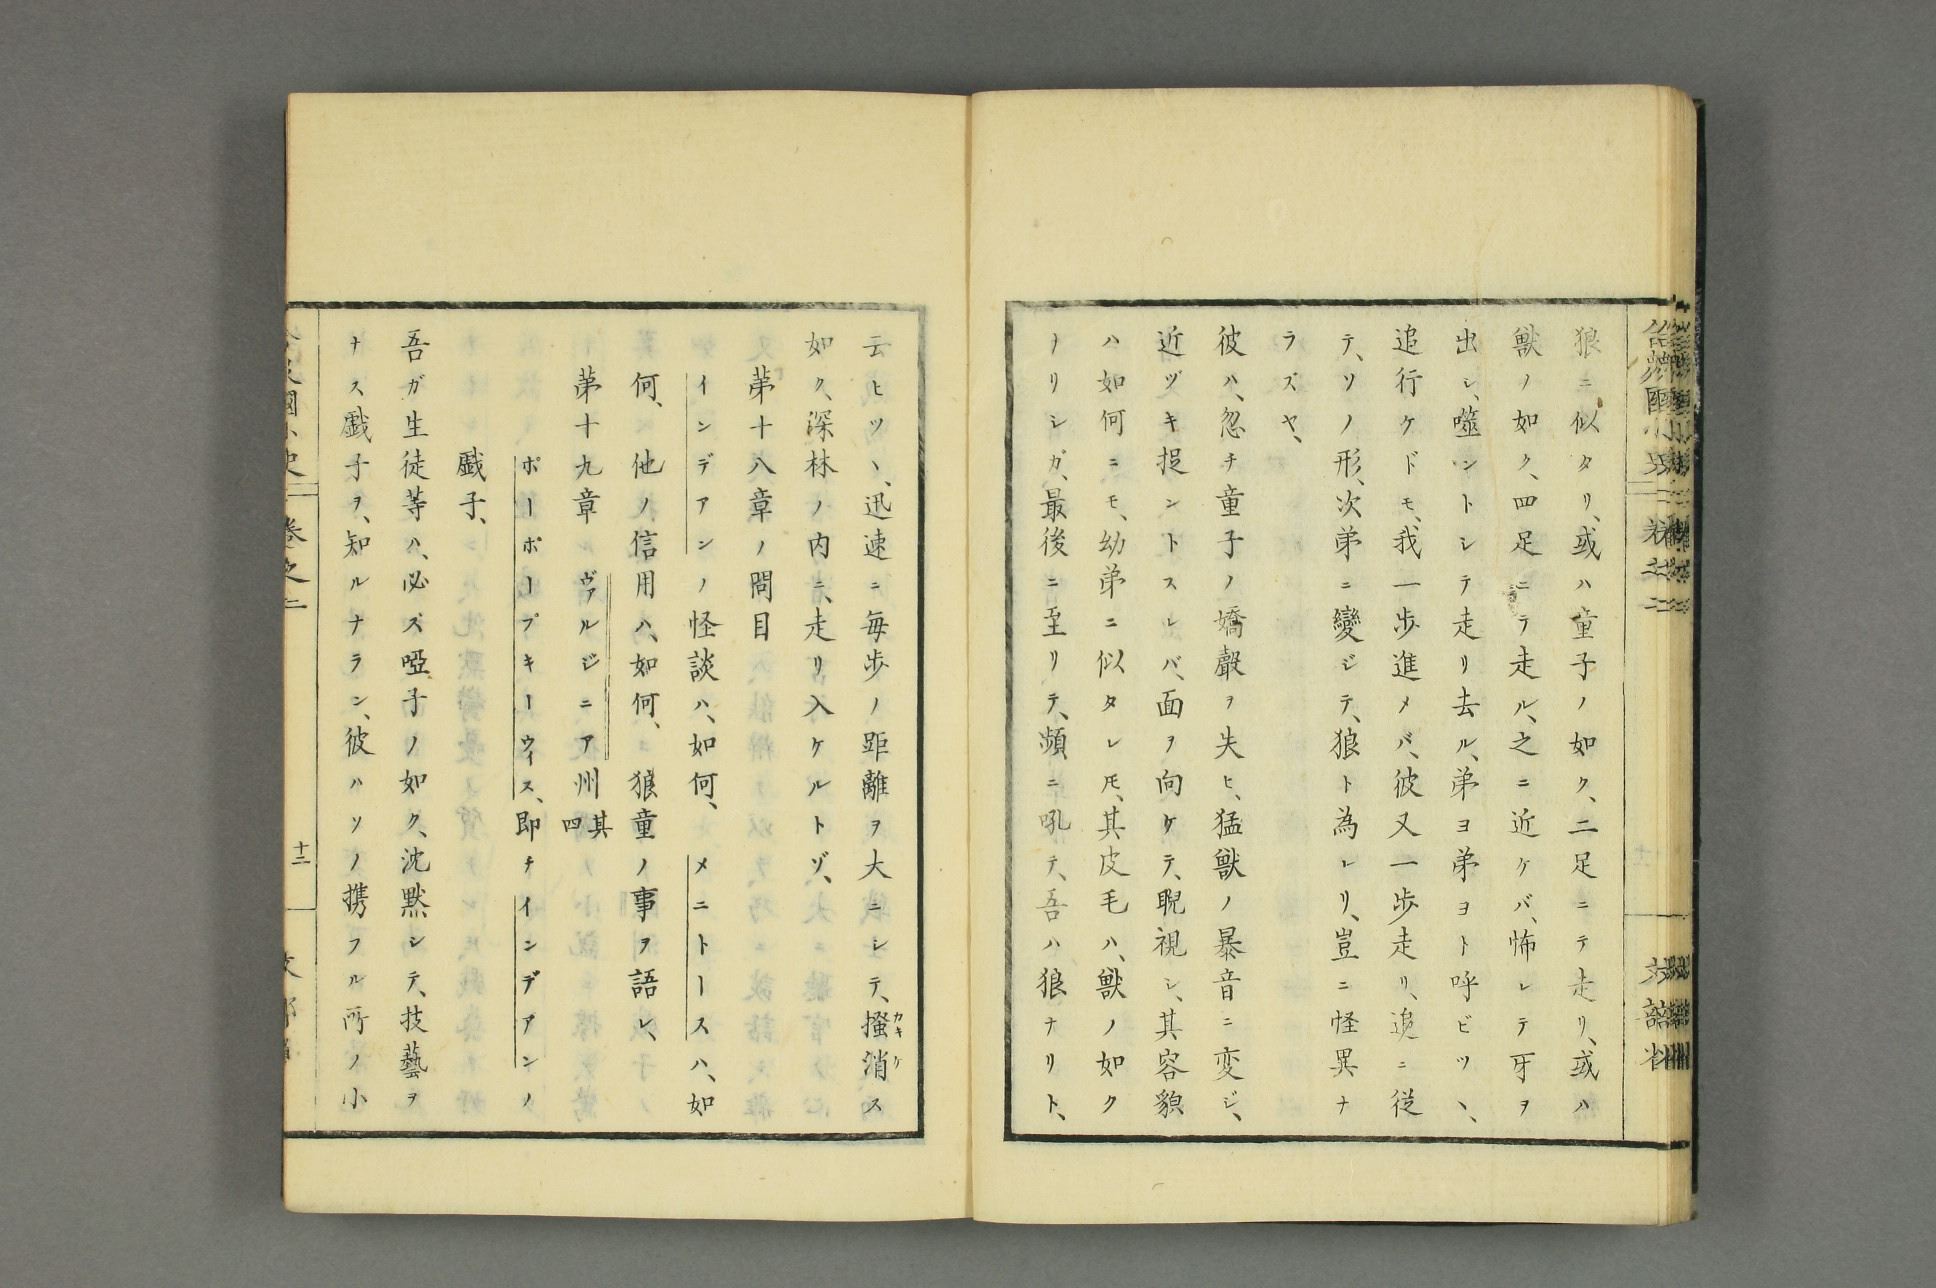 狼ニ似タリ、或ハ童子ノ如ク、二足ニテ走リ、或ハ
獣ノ如ク、四足ニテ走ル、之ニ近ケバ、怖レテ牙ヲ
出シ、噬ントシテ走リ去ル、弟ヨ弟ヨト呼ビツヽ、
追行ケドモ、我一歩進メバ、彼又一歩走リ、追ニ従
テ、ソノ形、次第ニ變ジテ、狼ト為レリ、豈ニ怪異ナ
ラズヤ、
彼ハ、忽チ童子ノ嬌聲ヲ失ヒ、猛獣ノ暴音ニ変ジ、
近ヅキ捉ントスレバ、面ヲ向ケテ、睨視シ、其容貌
ハ如何ニモ、幼弟ニ似タレ𪜈、其皮毛ハ、獣ノ如ク
ナリシガ、最後ニ至リテ、頻ニ吼テ、吾ハ狼ナリト、
云ヒツヽ、迅速ニ毎歩ノ距離ヲ大ニシテ、掻消ス
カキケ
如ク、深林ノ内ニ、走リ入ケルトゾ、
第十八章ノ問目
インデアンノ怪談ハ、如何、 メニトースハ、如
何、他ノ信用ハ、如何、 狼童ノ事ヲ語レ、
第十九章 ヴァルジニア州 其四
ポーポープキーウィス、即チインデアンノ
戯子、
吾ガ生徒等ハ、必ズ啞子ノ如ク、沈黙シテ、技藝ヲ
ナス戯子ヲ、知ルナラン、彼ハソノ携フル所ノ小
國小史 巻之二
十二
文部省